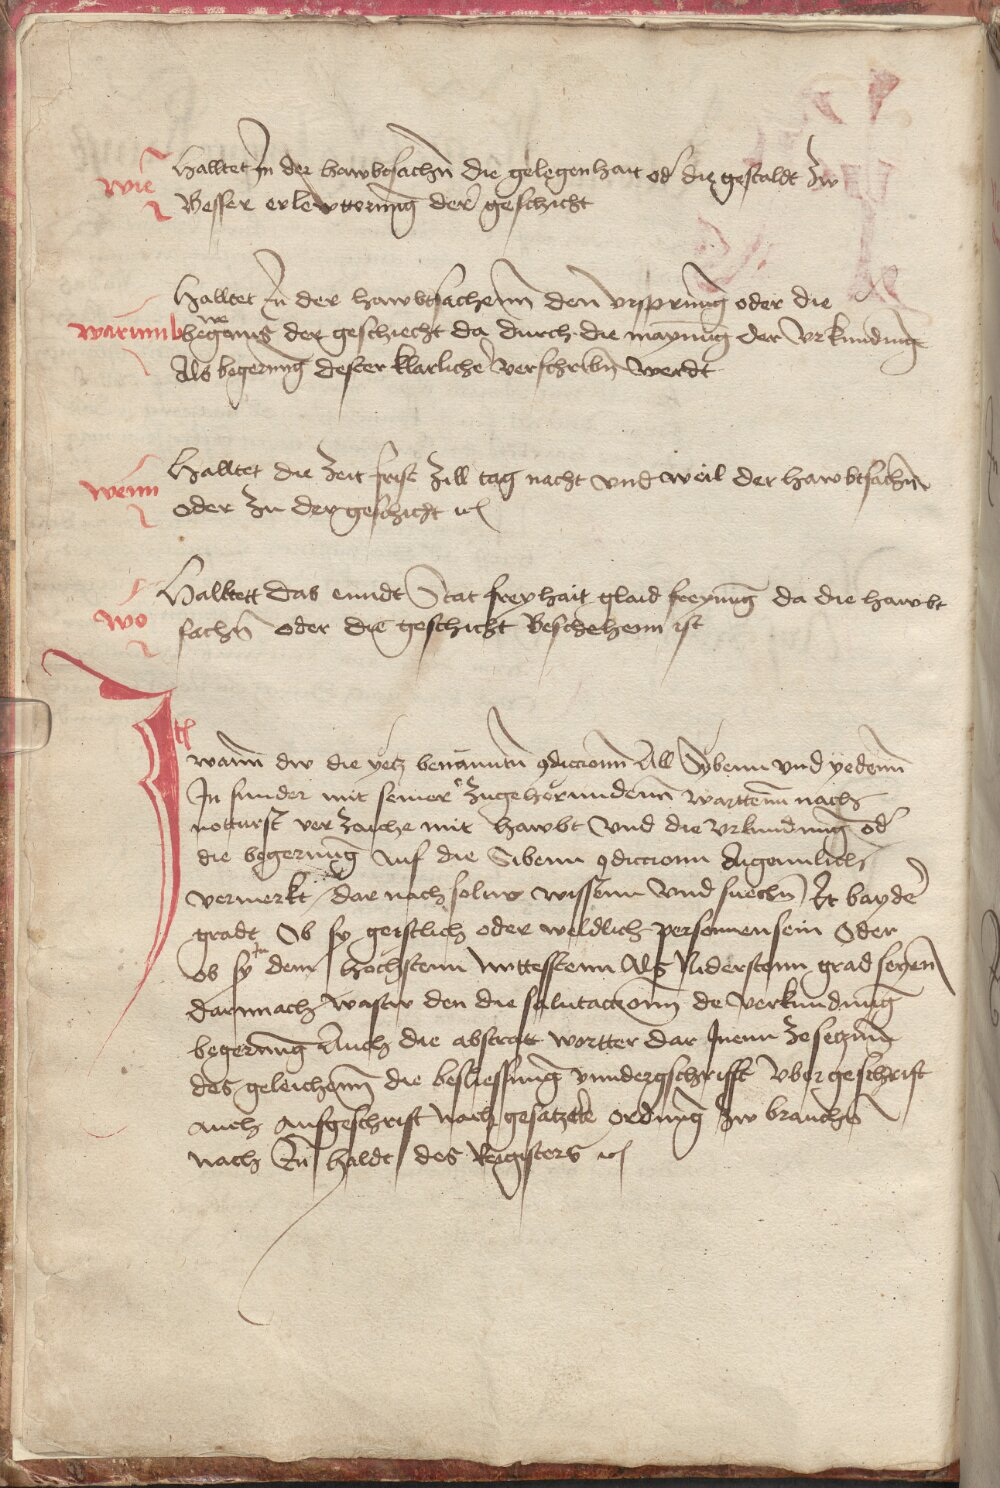 wie Halltet In der hawbtsachn̄ die gelegenhait od' die gestaldt zw
Besser erlewtterung der geschicht
Halltet In der hawbtsachenn den vrsprung oder die
warumb begernis der geschiecht da durch die maynung der vrkundung
Als begerung dester klarlicher verschribn̄ werdt
wenn Halltet die zeit frist zill tag nacht vnd weil der hawbtsachn̄
oder zu der geschicht
wo Halltett das enndt Stat freyhait glaid freyung da die hawbt
sachn̄ oder die geschicht Beschehenn ist
Itē
wann dw die yetz benanntn̄ 9diccionn All Sybenn vnd yedenn
In sunder mit seiner zugehorundenn warttenn nach
notturft ver zaiche mit hawbt vnd die vrkundung od'
die begerung auf die Sibenn 9diccionn Aigennlich
vermerkt dar nach soltw wissenn vnd suechn̄ bayder
gradt Ob sy geistlich oder weldlich personnen sein Oder
ob sy in dem hochstenn mittestenn Als Niderstenn grad seyen
darnnach wastw den die salutaczonn de verkundung
begerung Auch die abstratt wortter dar Inenn zesetznn
des geleichenn die besliessung vnndergschrifft vbergeschrift
auch aufgeschrift nach gesatzter ordnung zw brauchn̄
nach In haldt des Registers